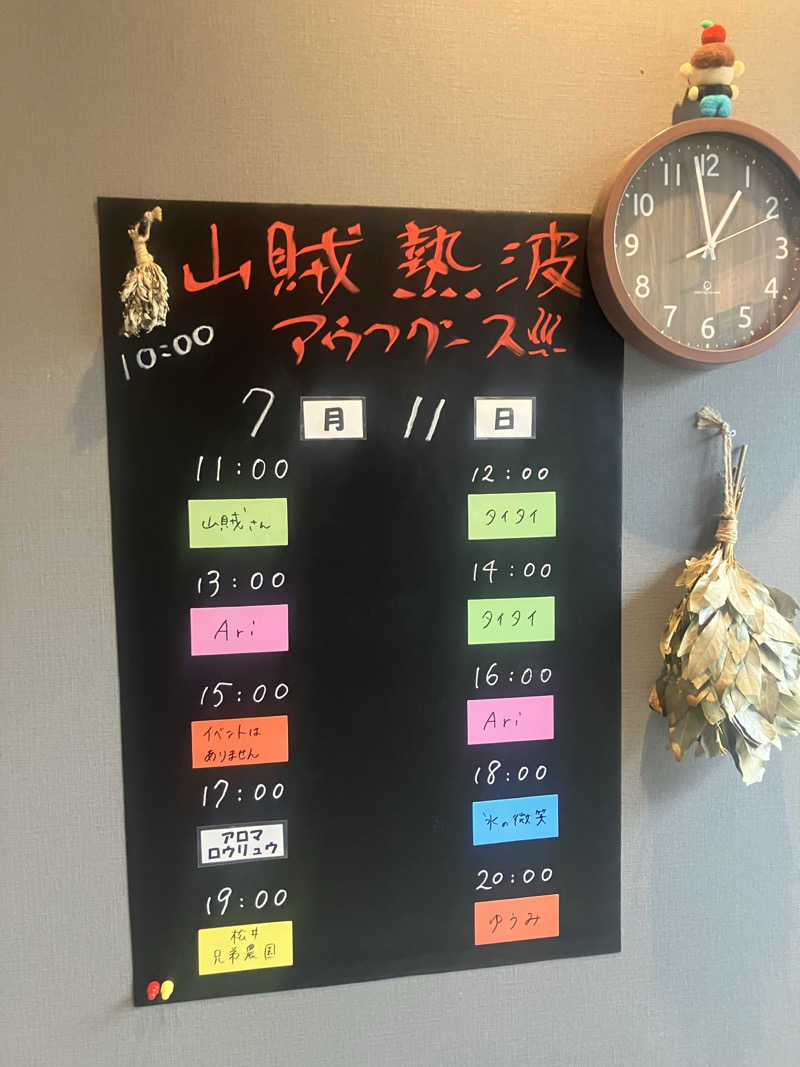 山賊 熱波
アウフグース
10:00
7 月 11 日
11:00
山賊さん
12:00
タイタイ
13:00
Ari
14:00
タイタイ
15:00
イベントは
ありません
16:00
Ari
17:00
アロマ
ロウリュウ
18:00
氷の微笑
19:00
松井
兄弟農園
20:00
ゆうみ
12
1
2
3
4
5
6
7
8
9
10
11